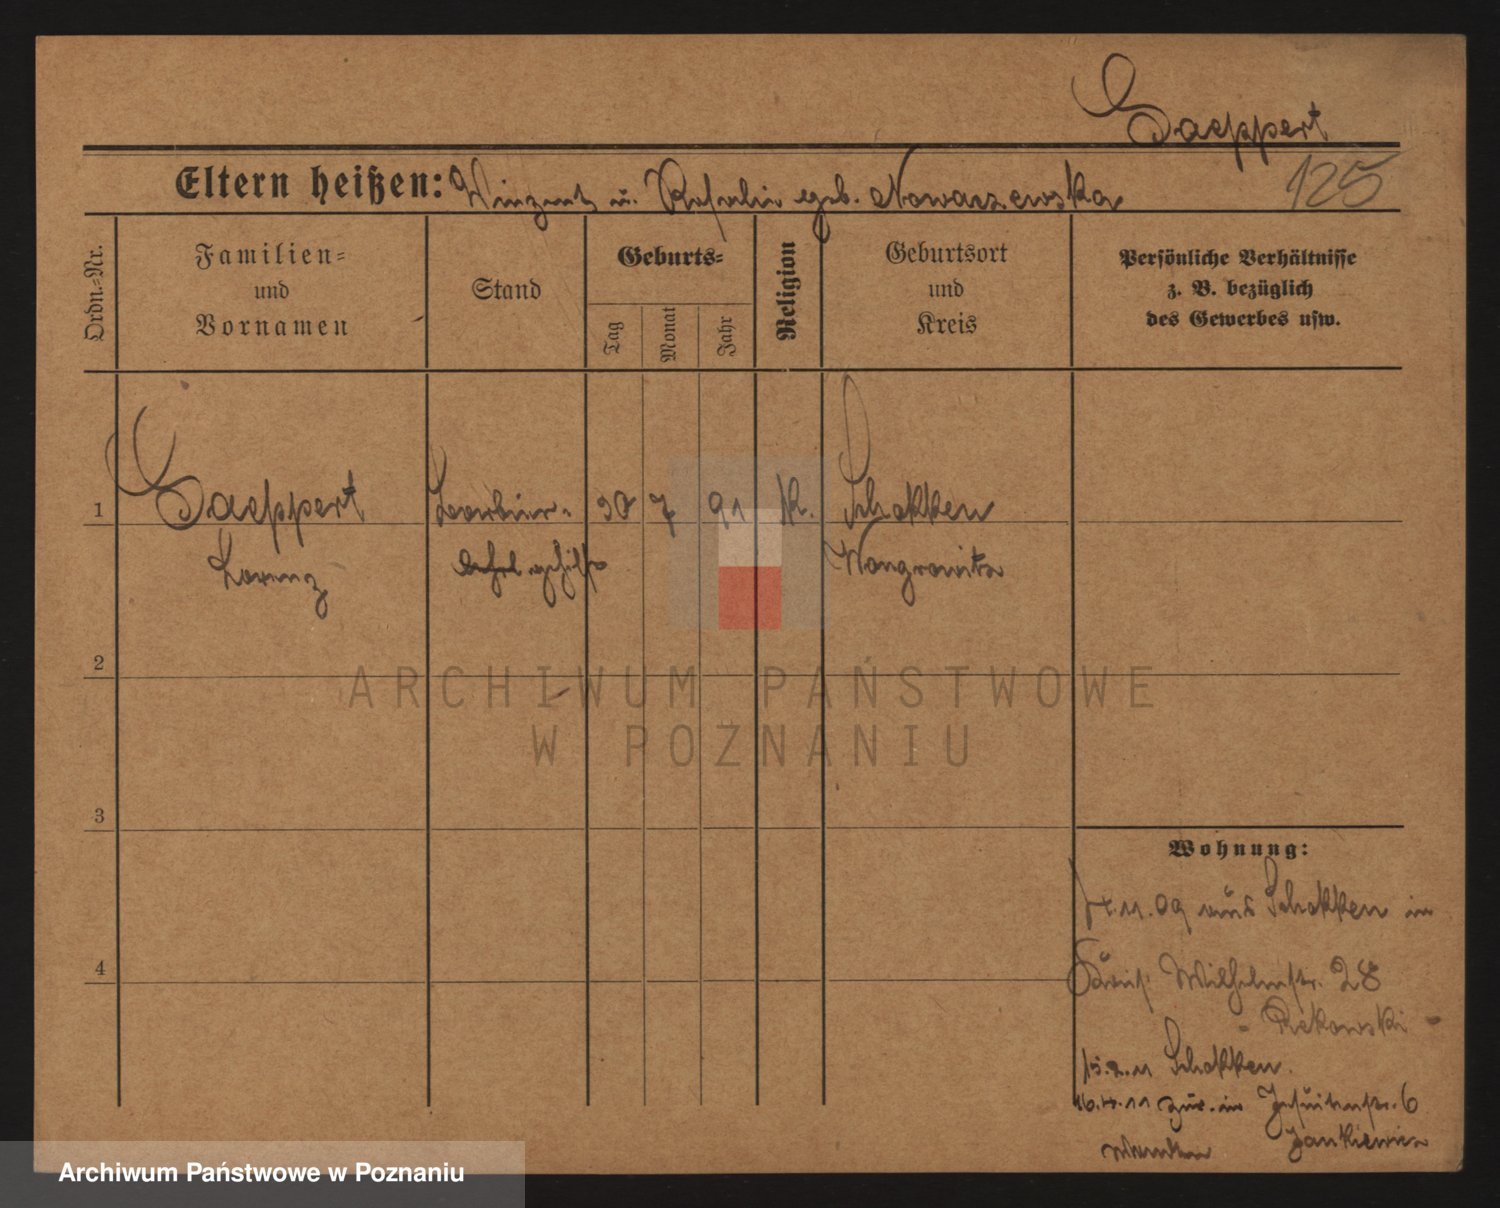 Gaeppert
125
Eltern heißen: Winzent u. Rosalie geb. Nowaczewska
Ordn.-Nr.
Familien-
und
Vornamen
Stand
Geburts-
Tag
Monat
Jahr
Religion
Geburtsort
und
Kreis
Persönliche Verhältnisse
z. B. bezüglich
des Gewerbes usw.
1 Gaeppert Barbier- 30 7 91 K. Schokken
Lorenz gehilfe Wongrowitz
2
3
4
Wohnung:
4.11.09 aus Schokken in
Wilhelmstr. 28
- Rekowski -
15.2.11 Schokken.
16.4.11 zur. in Jesuitenstr. 6
Jankiewicz
ARCHIWUM PAŃSTWOWE
W POZNANIU
Archiwum Państwowe w Poznaniu